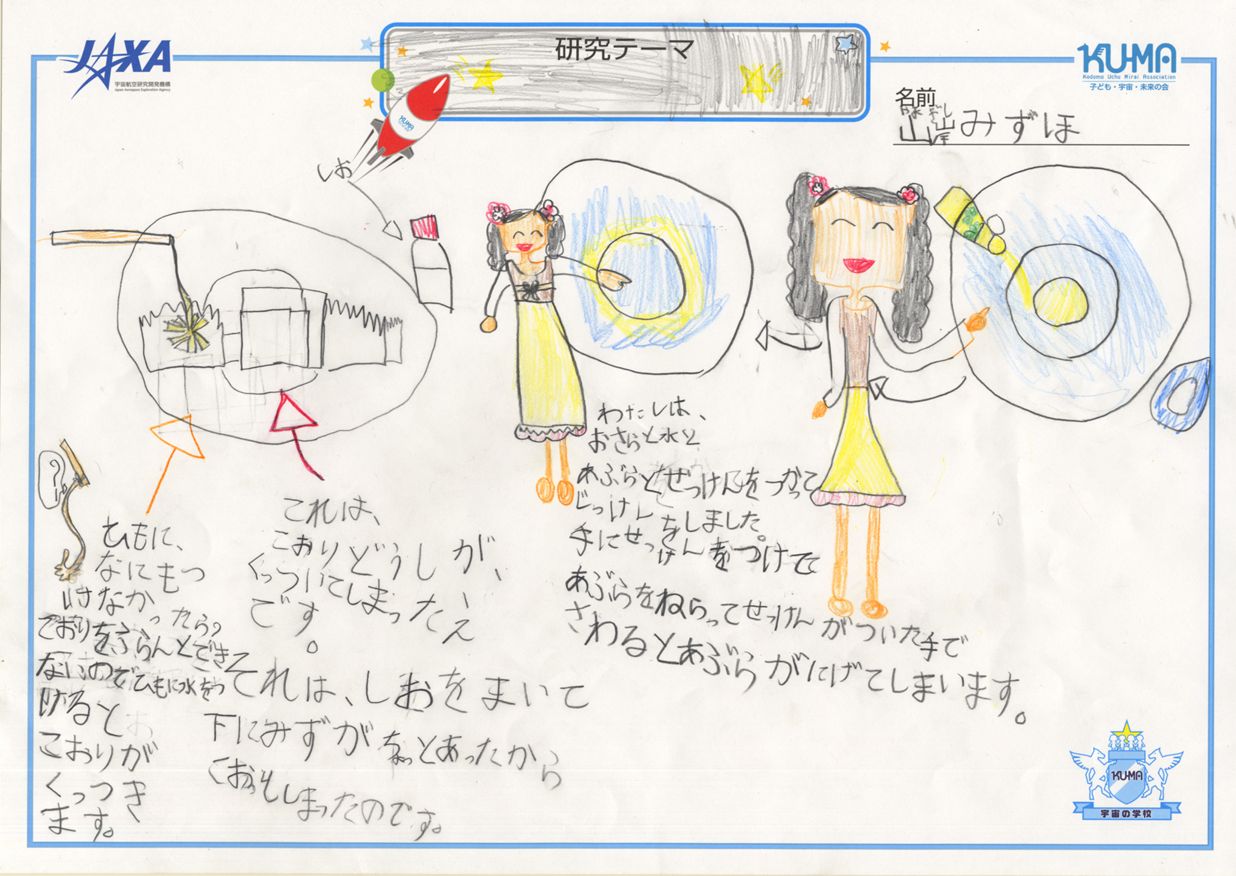 JAXA
宇宙航空研究開発機構
Japan Aerospace Exploration Agency
研究テーマ
KUMA
Kodomo Uchu Mirai Association
子ども・宇宙・未来の会
名前
山岸みずほ
KUMA
しお
わたしは、
おさらと水と
あぶらとせっけんをつかって
じっけんをしました。
手にせっけんをつけて
あぶらをねらってせっけんがついた手で
さわるとあぶらがにげてしまいます。
これは、
こおりどうしが、
くっついてしまったえ
です。
それは、しおをまいて
下にみずがちょっとあったから
しまったのです。
ひもに、
なにもつ
けなかったら。
こおりをぶらんとできて
ないのでひもに水をつ
けると
こおりが
くっつき
ます。
KUMA
宇宙の学校